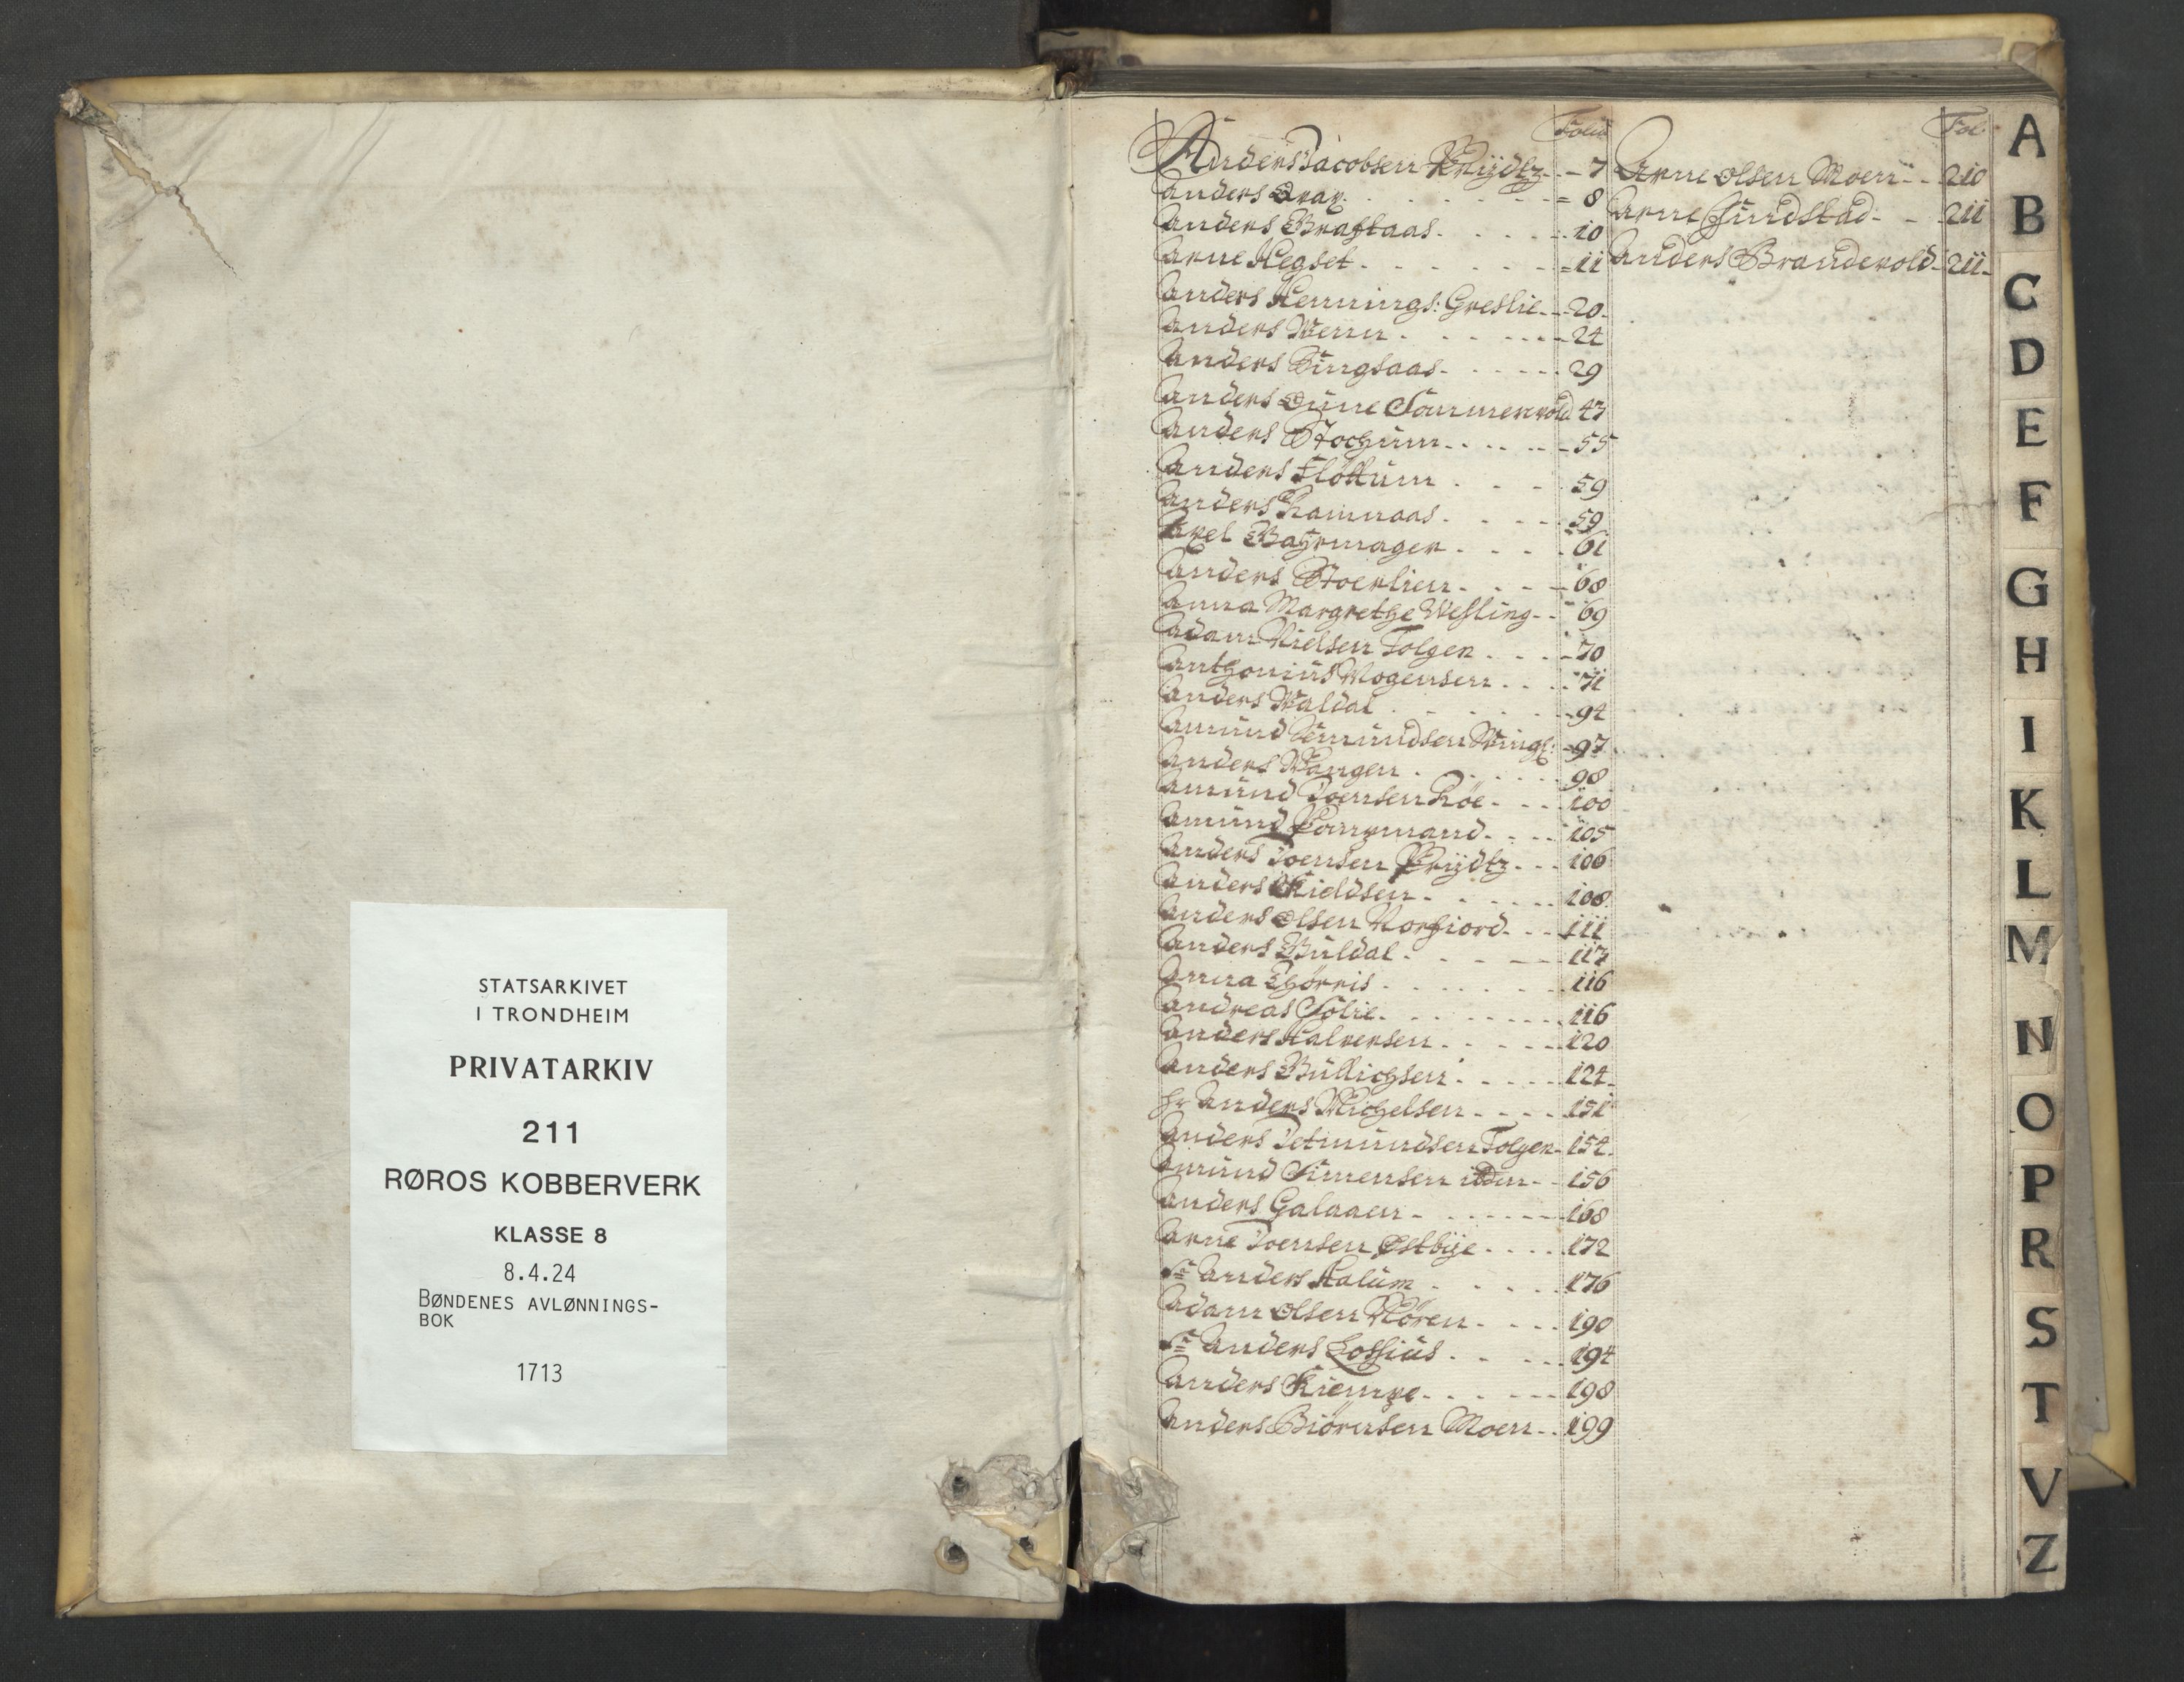 STATSARKIVET
I TRONDHEIM
PRIVATARKIV
211
RØROS KOBBERVERK
KLASSE 8
8.4.24
BØNDENES AVLØNNINGS-
BOK
1713
Folio
Anders Jacobsen Prÿdtz 7
Anders 8
Anders Graftaas 10
Arne Hegset 11
Anders Hennings: Greslie 20
Anders Wenn 24
Anders Singsaas 29
Anders Sommervold 47
Anders 55
Anders Fløttum 59
Anders Kamraas 59
Axel Bøÿrmager 61
Anders Stoerlien 68
Anna Margrethe Wesling 69
Adam Nielsen Tolgen 70
Anthonius Mogensen 71
Anders Waldal 94
Amund 97
Anders Wangen 98
Amund Joensen Røe 100
Amund 105
Anders Joensen Prÿdtz 106
Anders Kieldsen 108
Anders Olsen Norfiord 111
Anders Buldal 117
Anna Thørris 116
Andreas Solie 116
Anders Halvorsen 120
Anders 124
Hr Anders Michelsen 151
Anders Tolgen 154
Amund Simensen 156
Anders Galaaen 168
Arne Joensen Østbÿe 172
Sr Anders Kalum 176
Adam Olsen 190
Sr Anders Lossius 194
Anders Kiempe 198
Anders Biörnsen Moen 199
Fol
Arne Olsen Moen 210
Arne Sundstad 211
Anders Brandevold 211
A
B
C
D
E
F
G
H
I
K
L
M
N
O
P
R
S
T
V
Z